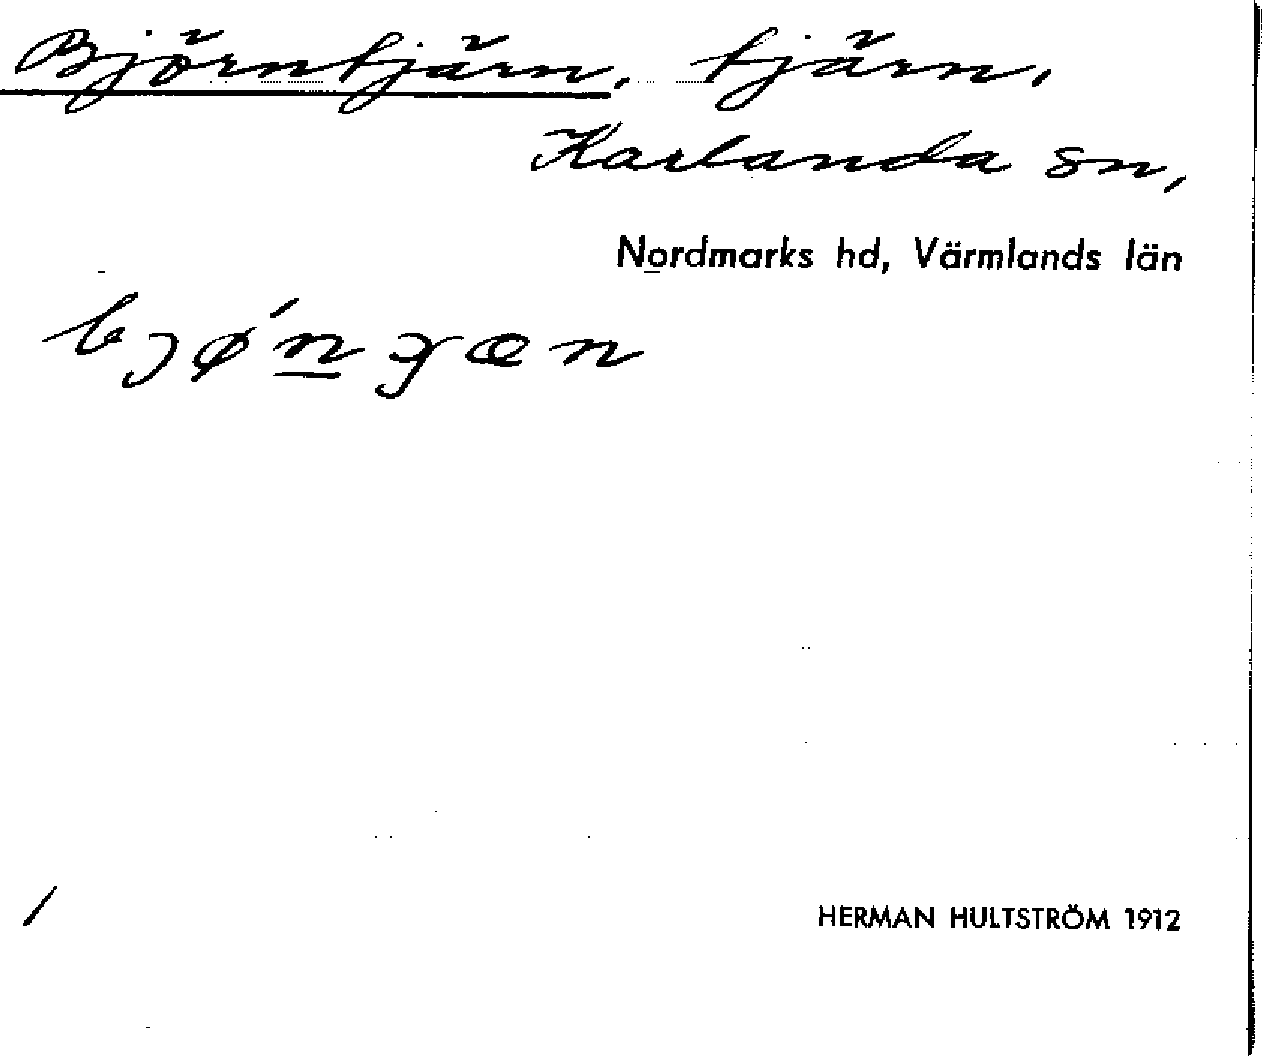 Björntjärn, tjärn,
Karlanda sn,
Nordmarks hd, Värmlands län
HERMAN HULTSTRÖM 1912